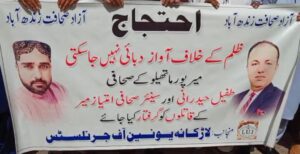 آزاد صحافت زندھ آباد
احتجاج
آزاد صحافت زندھ آباد
ظلم کے خلاف آواز دبائی نہیں جاسکتی
میرپور ماتھیلو کے صحافی
طفیل حیدرانی اور سینئر صحافی امتیاز میر
کے قاتلوں کو گرفتار کیا جائے
منجانب لاڑکانہ یونین آف جرنلسٹس